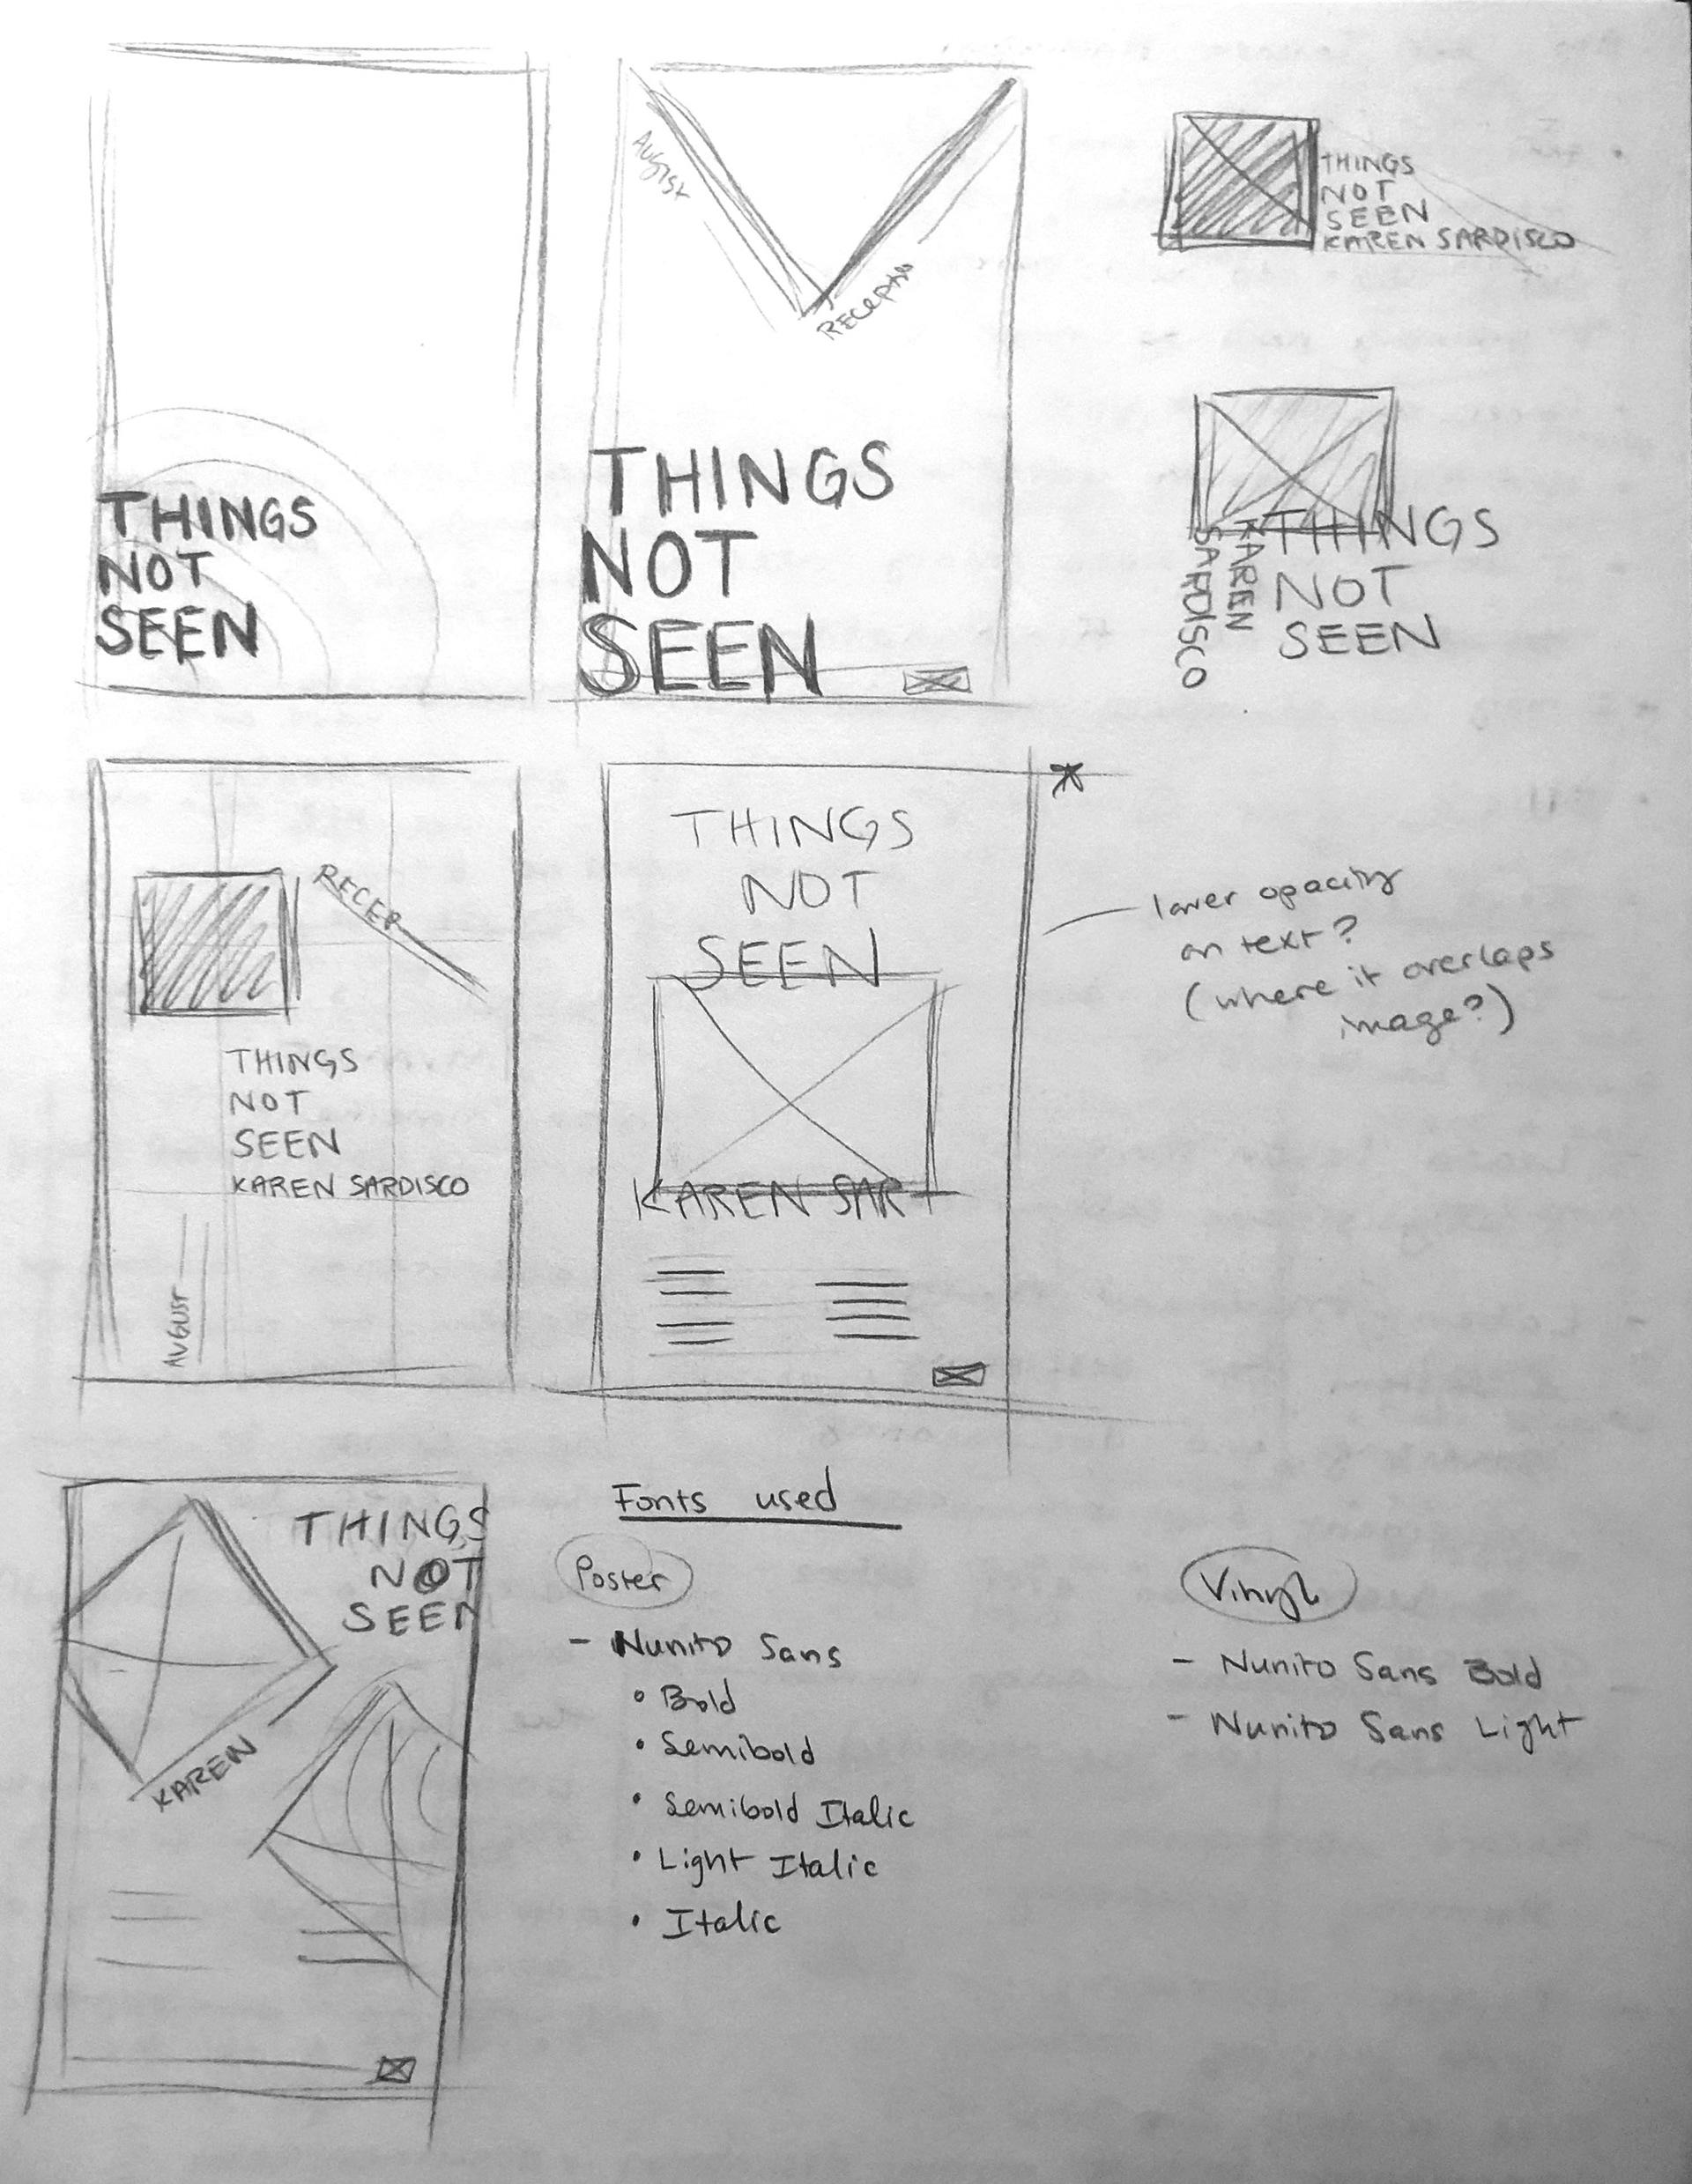 THINGS
NOT
SEEN
AUGUST
RECEPTIO
THINGS
NOT
SEEN
THINGS
NOT
SEEN
KAREN SARDISCO
THINGS
NOT
SEEN
KAREN
SARDISCO
RECEP
THINGS
NOT
SEEN
KAREN SARDISCO
AUGUST
THINGS
NOT
SEEN
KAREN SAR
lower opacity
on text?
(where it overlaps
image?)
THINGS
NOT
SEEN
KAREN
Fonts used
Poster
- Nunito Sans
• Bold
• Semibold
• Semibold Italic
• Light Italic
• Italic
Vinyl
- Nunito Sans Bold
- Nunito Sans Light